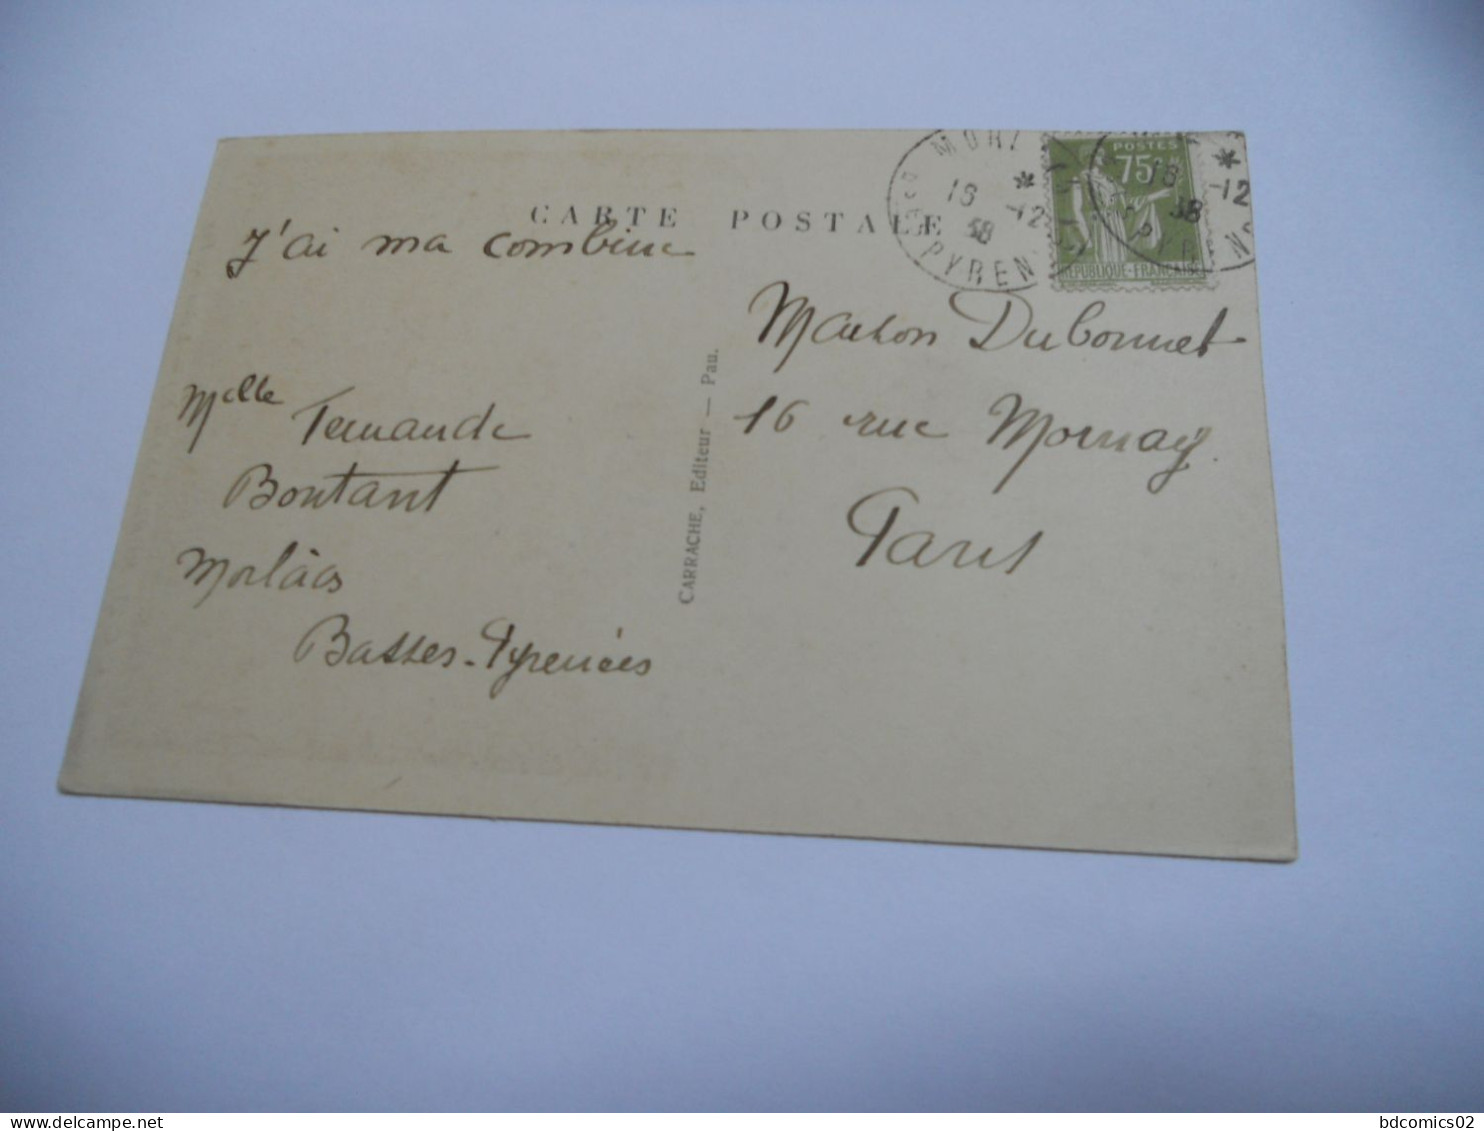 CARTE POSTALE
J'ai ma combine
Melle Fernande
Boutant
Morlàas
Basses-Pyrénées
CARRACHE, Editeur — Pau.
POSTES
75c
REPUBLIQUE-FRANCAISE
18
-12
38
PYREN
18
-12
38
PYR N
Maison Dubonnet
16 rue Mornay
Paris
bdcomics02